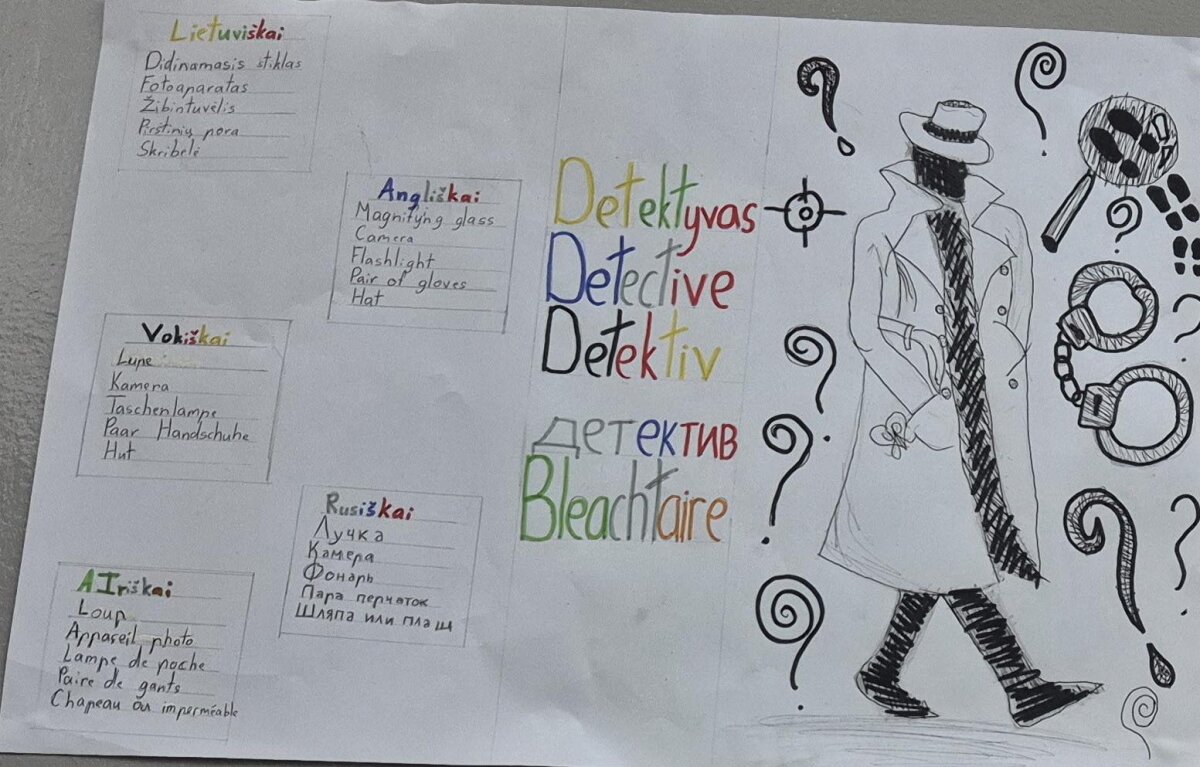 Lietuviškai
Didinamasis stiklas
Fotoaparatas
Žibintuvėlis
Pirštinių pora
Skribelė
Angliškai
Magnifyng glass
Camera
Flashlight
Pair of gloves
Hat
Vokiškai
Lupe
Kamera
Taschenlampe
Paar Handschuhe
Hut
Rusiškai
Лучка
Камера
Фонарь
Пара перчаток
Шляпа или плащ
AIriškai
Loup
Appareil photo
Lampe de poche
Paire de gants
Chapeau ou imperméable
Detektyvas
Detective
Detektiv
детектив
Bleachtaire